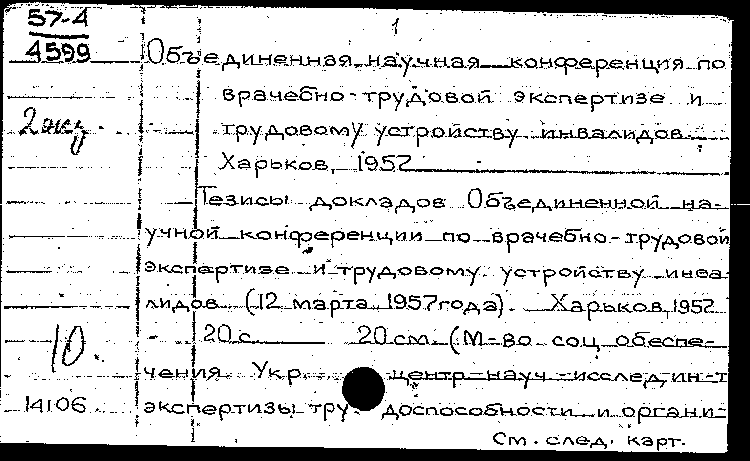 57-4
4599
1
Объединенная научная конференция по
врачебно-трудовой экспертизе и
2 экз.
трудовому устройству инвалидов.
Харьков, 1952
Тезисы докладов Объединенной на-
учной конференции по врачебно-трудовой
экспертизе и трудовому устройству инва
лидов (12 марта 1957 года). Харьков, 1952
10.
- 20 с. 20 см. (М-во соц. обеспе-
чения Укр. центр. науч.-исслед. ин-т
14106
экспертизы тру доспособности и органи-
См. след. карт.